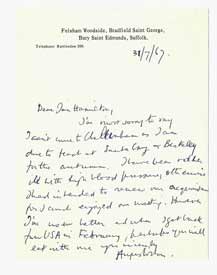 Felsham Woodside, Bradfield Saint George,
Bury Saint Edmunds, Suffolk.
Telephone: Rattlesden 200.
31/7/67.
Dear Ian Hamilton,
I'm most sorry to say
I can't come to Cheltenham as I am
due to teach at Santa Cruz or Berkeley
for the autumn. I have been rather
ill with high blood pressure, otherwise
I had intended to renew our
for I much enjoyed our meeting. However
I'm now better and when I get back
from USA in February, perhaps you will
eat with me.